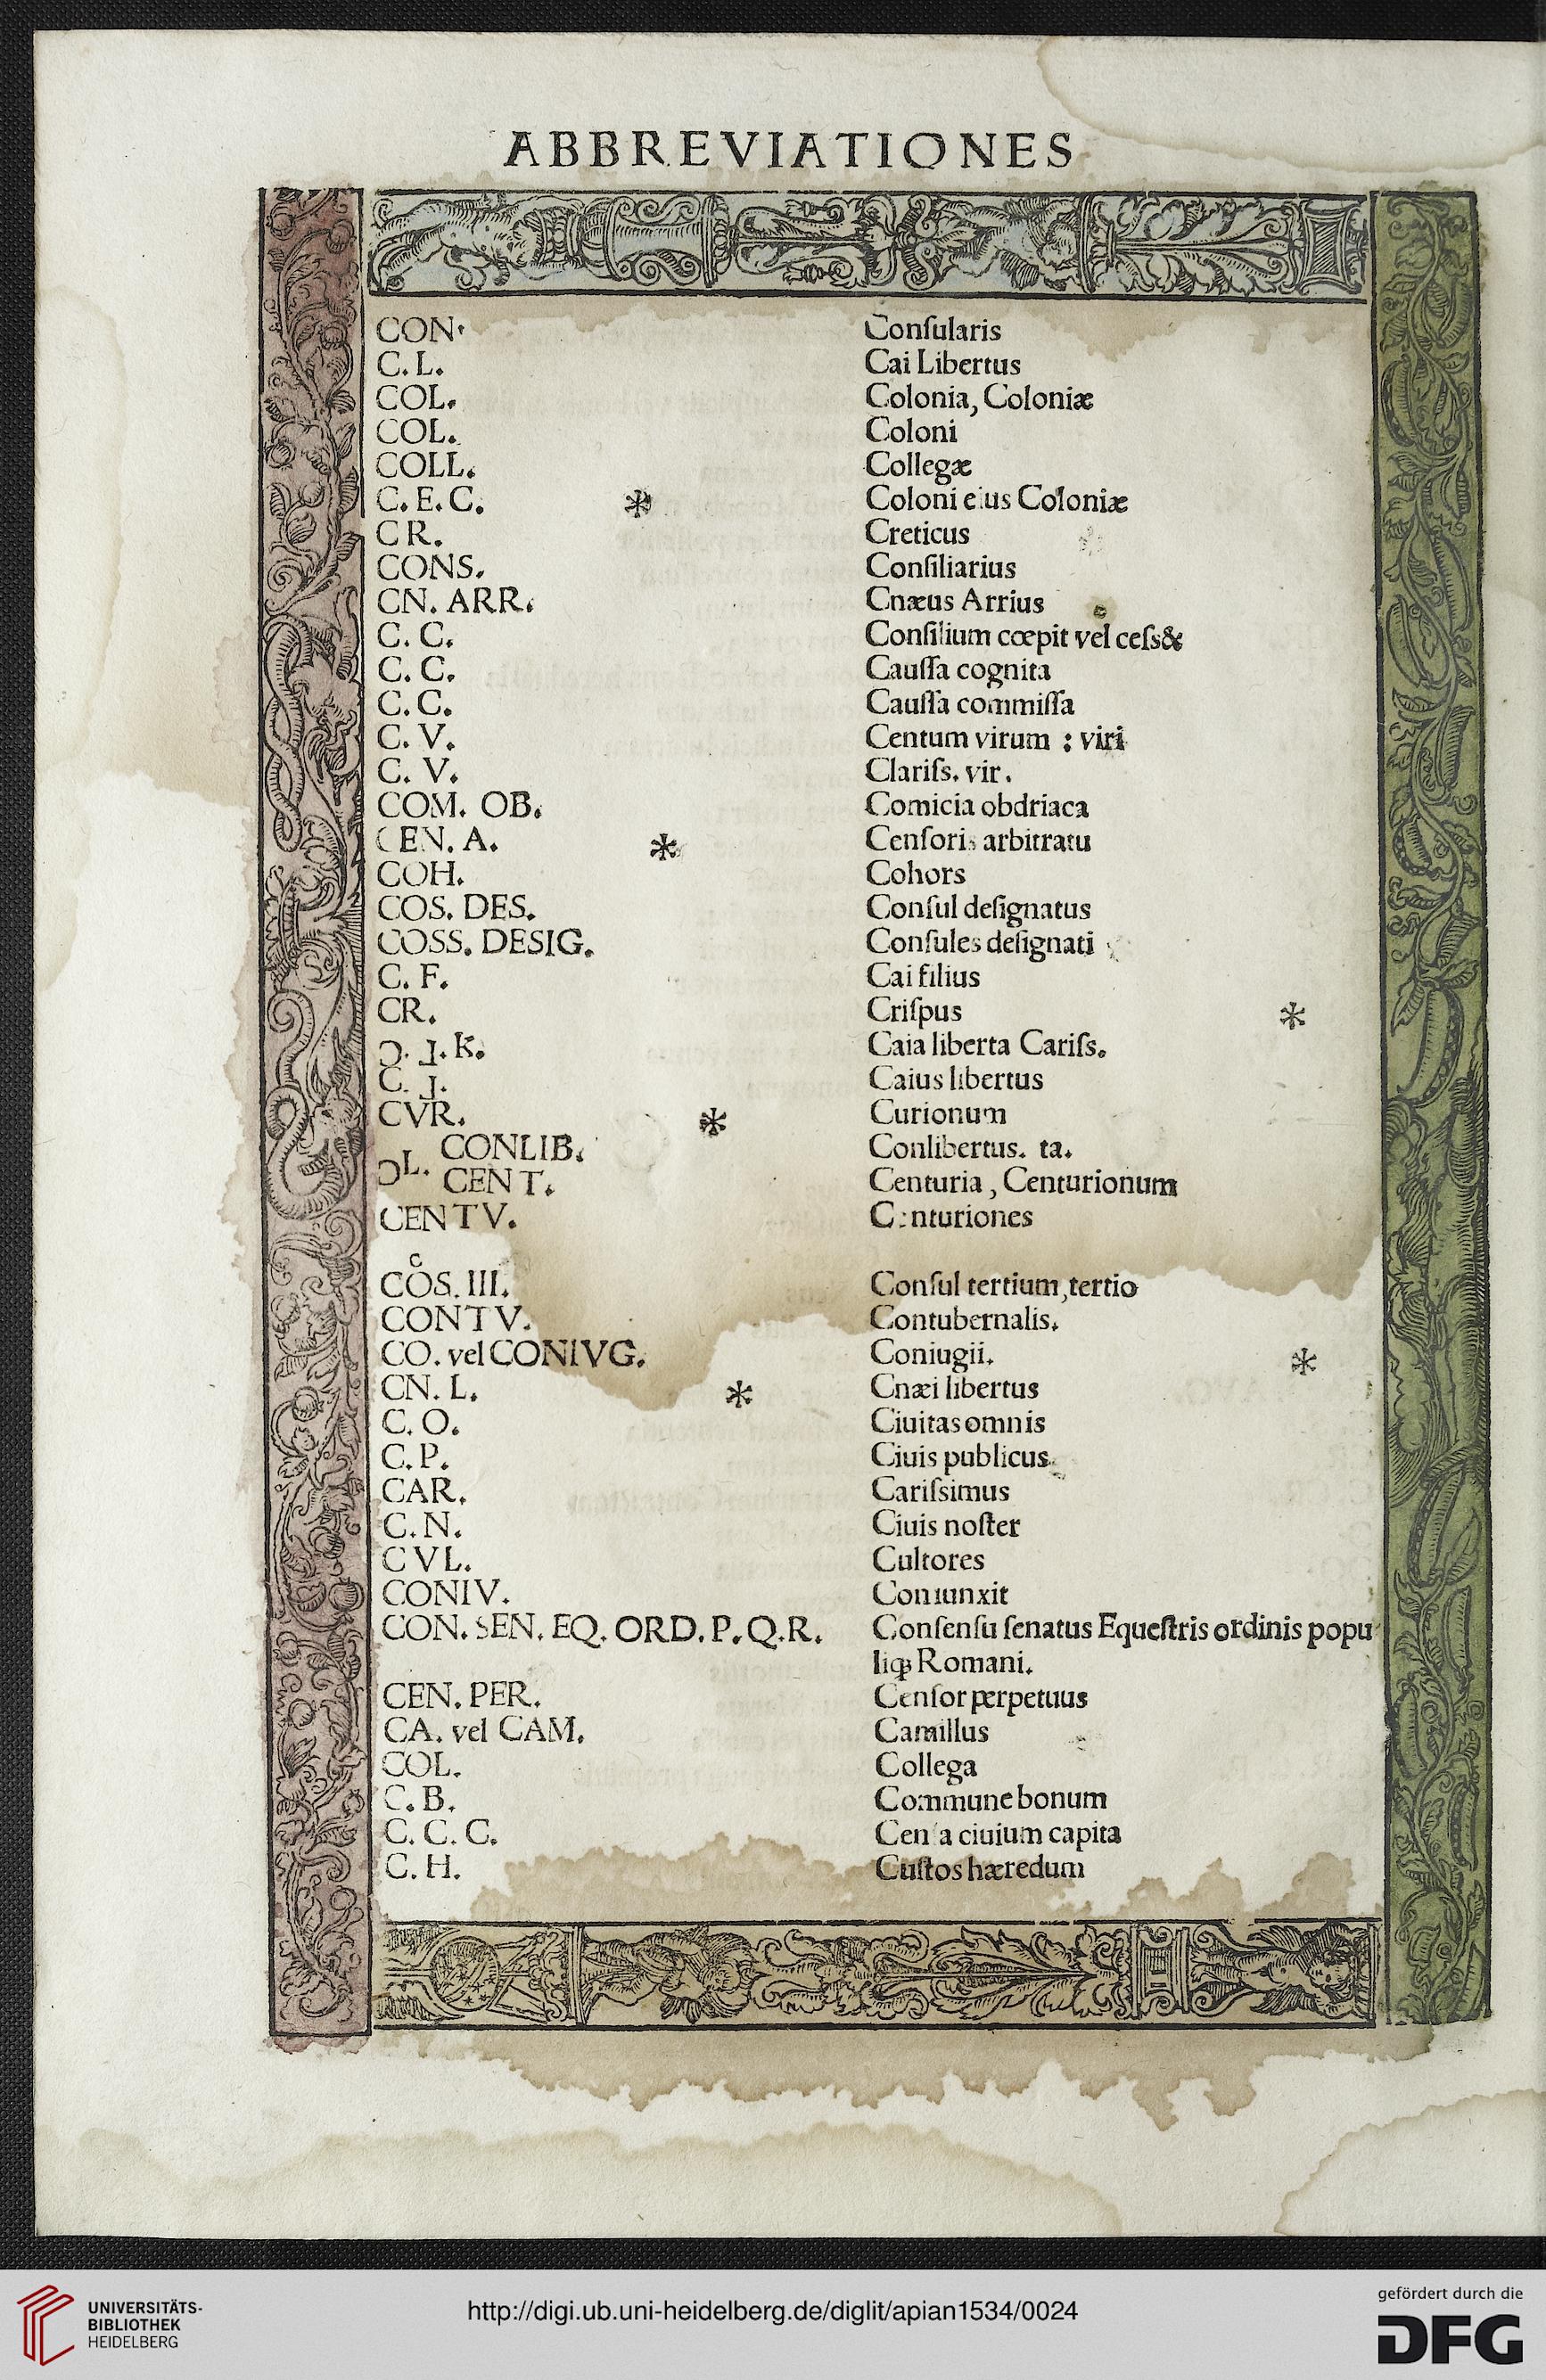 ABBREVIATIONES
CON. Conſularis
C. L. Cai Libertus
COL. Colonia, Coloniæ
COL. Coloni
COLL. Collegæ
C. E. C. * Coloni eius Coloniæ
CR. Creticus
CONS. Conſiliarius
CN. ARR. Cnæus Arrius
C. C. Conſilium cœpit vel ceſs&
C. C. Cauſſa cognita
C. C. Cauſſa commiſſa
C. V. Centum virum : viri
C. V. Clariſs. vir.
COM. OB. Comicia obdriaca
CEN. A. * Cenſoris arbitratu
COH. Cohors
COS. DES. Conſul deſignatus
COSS. DESIG. Conſules deſignati
C. F. Cai filius
CR. Criſpus *
Ɔ. ⅃. K. Caia liberta Cariſs.
C. ⅃. Caius libertus
CVR. * Curionum
CONLIB. Conlibertus. ta.
ƆL. CENT. Centuria, Centurionum
CENTV. Centuriones
c
COS. III. Conſul tertium, tertio
CONTV. Contubernalis.
CO. vel CONIVG. Coniugii. *
CN. L. * Cnæi libertus
C. O. Ciuitas omnis
C. P. Ciuis publicus
CAR. Cariſsimus
C. N. Ciuis noſter
CVL. Cultores
CONIV. Coniunxit
CON. SEN. EQ. ORD. P. Q. R. Conſenſu ſenatus Equeſtris ordinis popu
liq; Romani.
CEN. PER. Cenſor perpetuus
CA. vel CAM. Camillus
COL. Collega
C. B. Commune bonum
C. C. C. Cenſa ciuium capita
C. H. Cuſtos hæredum
UNIVERSITÄTS-
BIBLIOTHEK
HEIDELBERG
http://digi.ub.uni-heidelberg.de/diglit/apian1534/0024
gefördert durch die
DFG